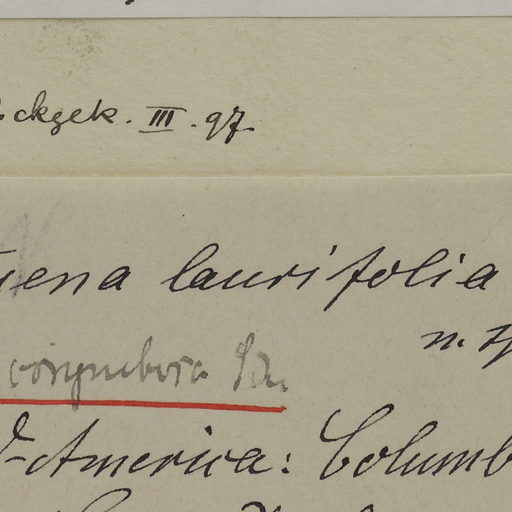 ckgek. III. 97.
uena laurifolia
n. sp
corymbosa
d-America: Columb